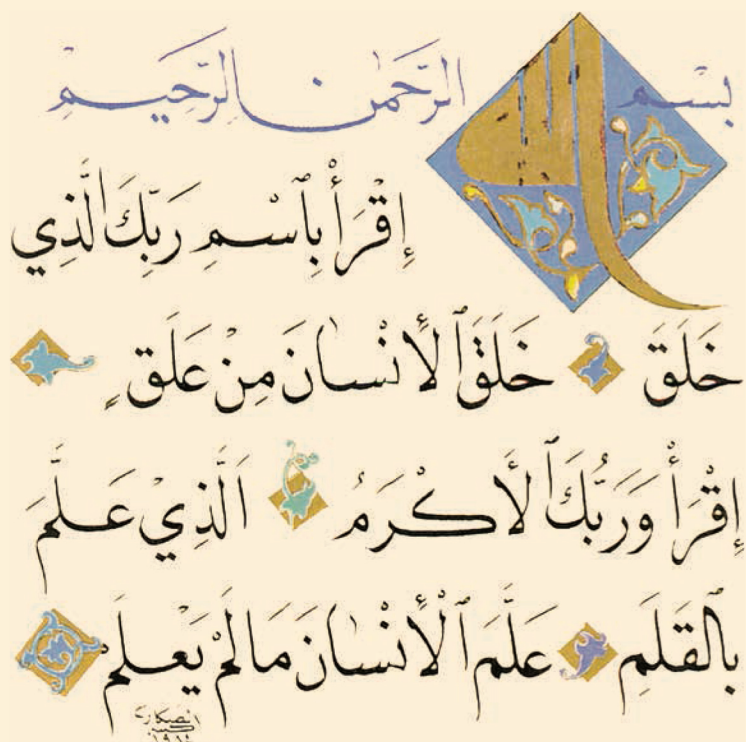 بِسْمِ اللّٰه الرَّحْمٰنِ الرَّحِيمِ
إِقْرَأْ بِٱسْمِ رَبِّكَ الَّذِي
خَلَقَ خَلَقَ ٱلْأِنْسٰانَ مِنْ عَلَقٍ
إِقْرَأْ وَرَبُّكَ ٱلأَكْرَمُ اَلَّذِيْ عَلَّمَ
بِٱلْقَلَمِ عَلَّمَ ٱلْأِنْسٰانَ مَا لَمْ يَعْلَمْ
الصكار